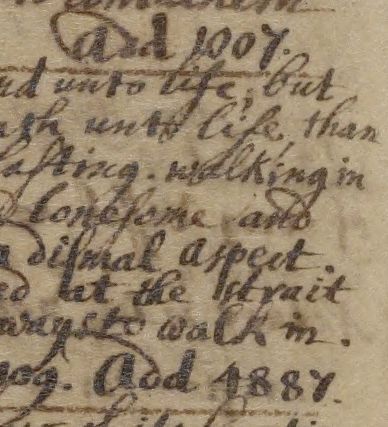 Add 1007.
unto life, but
unto life, than
lasting. walking in
lonesome and
dismal aspect.
at the strait
ways to walk in.
Add 4887.